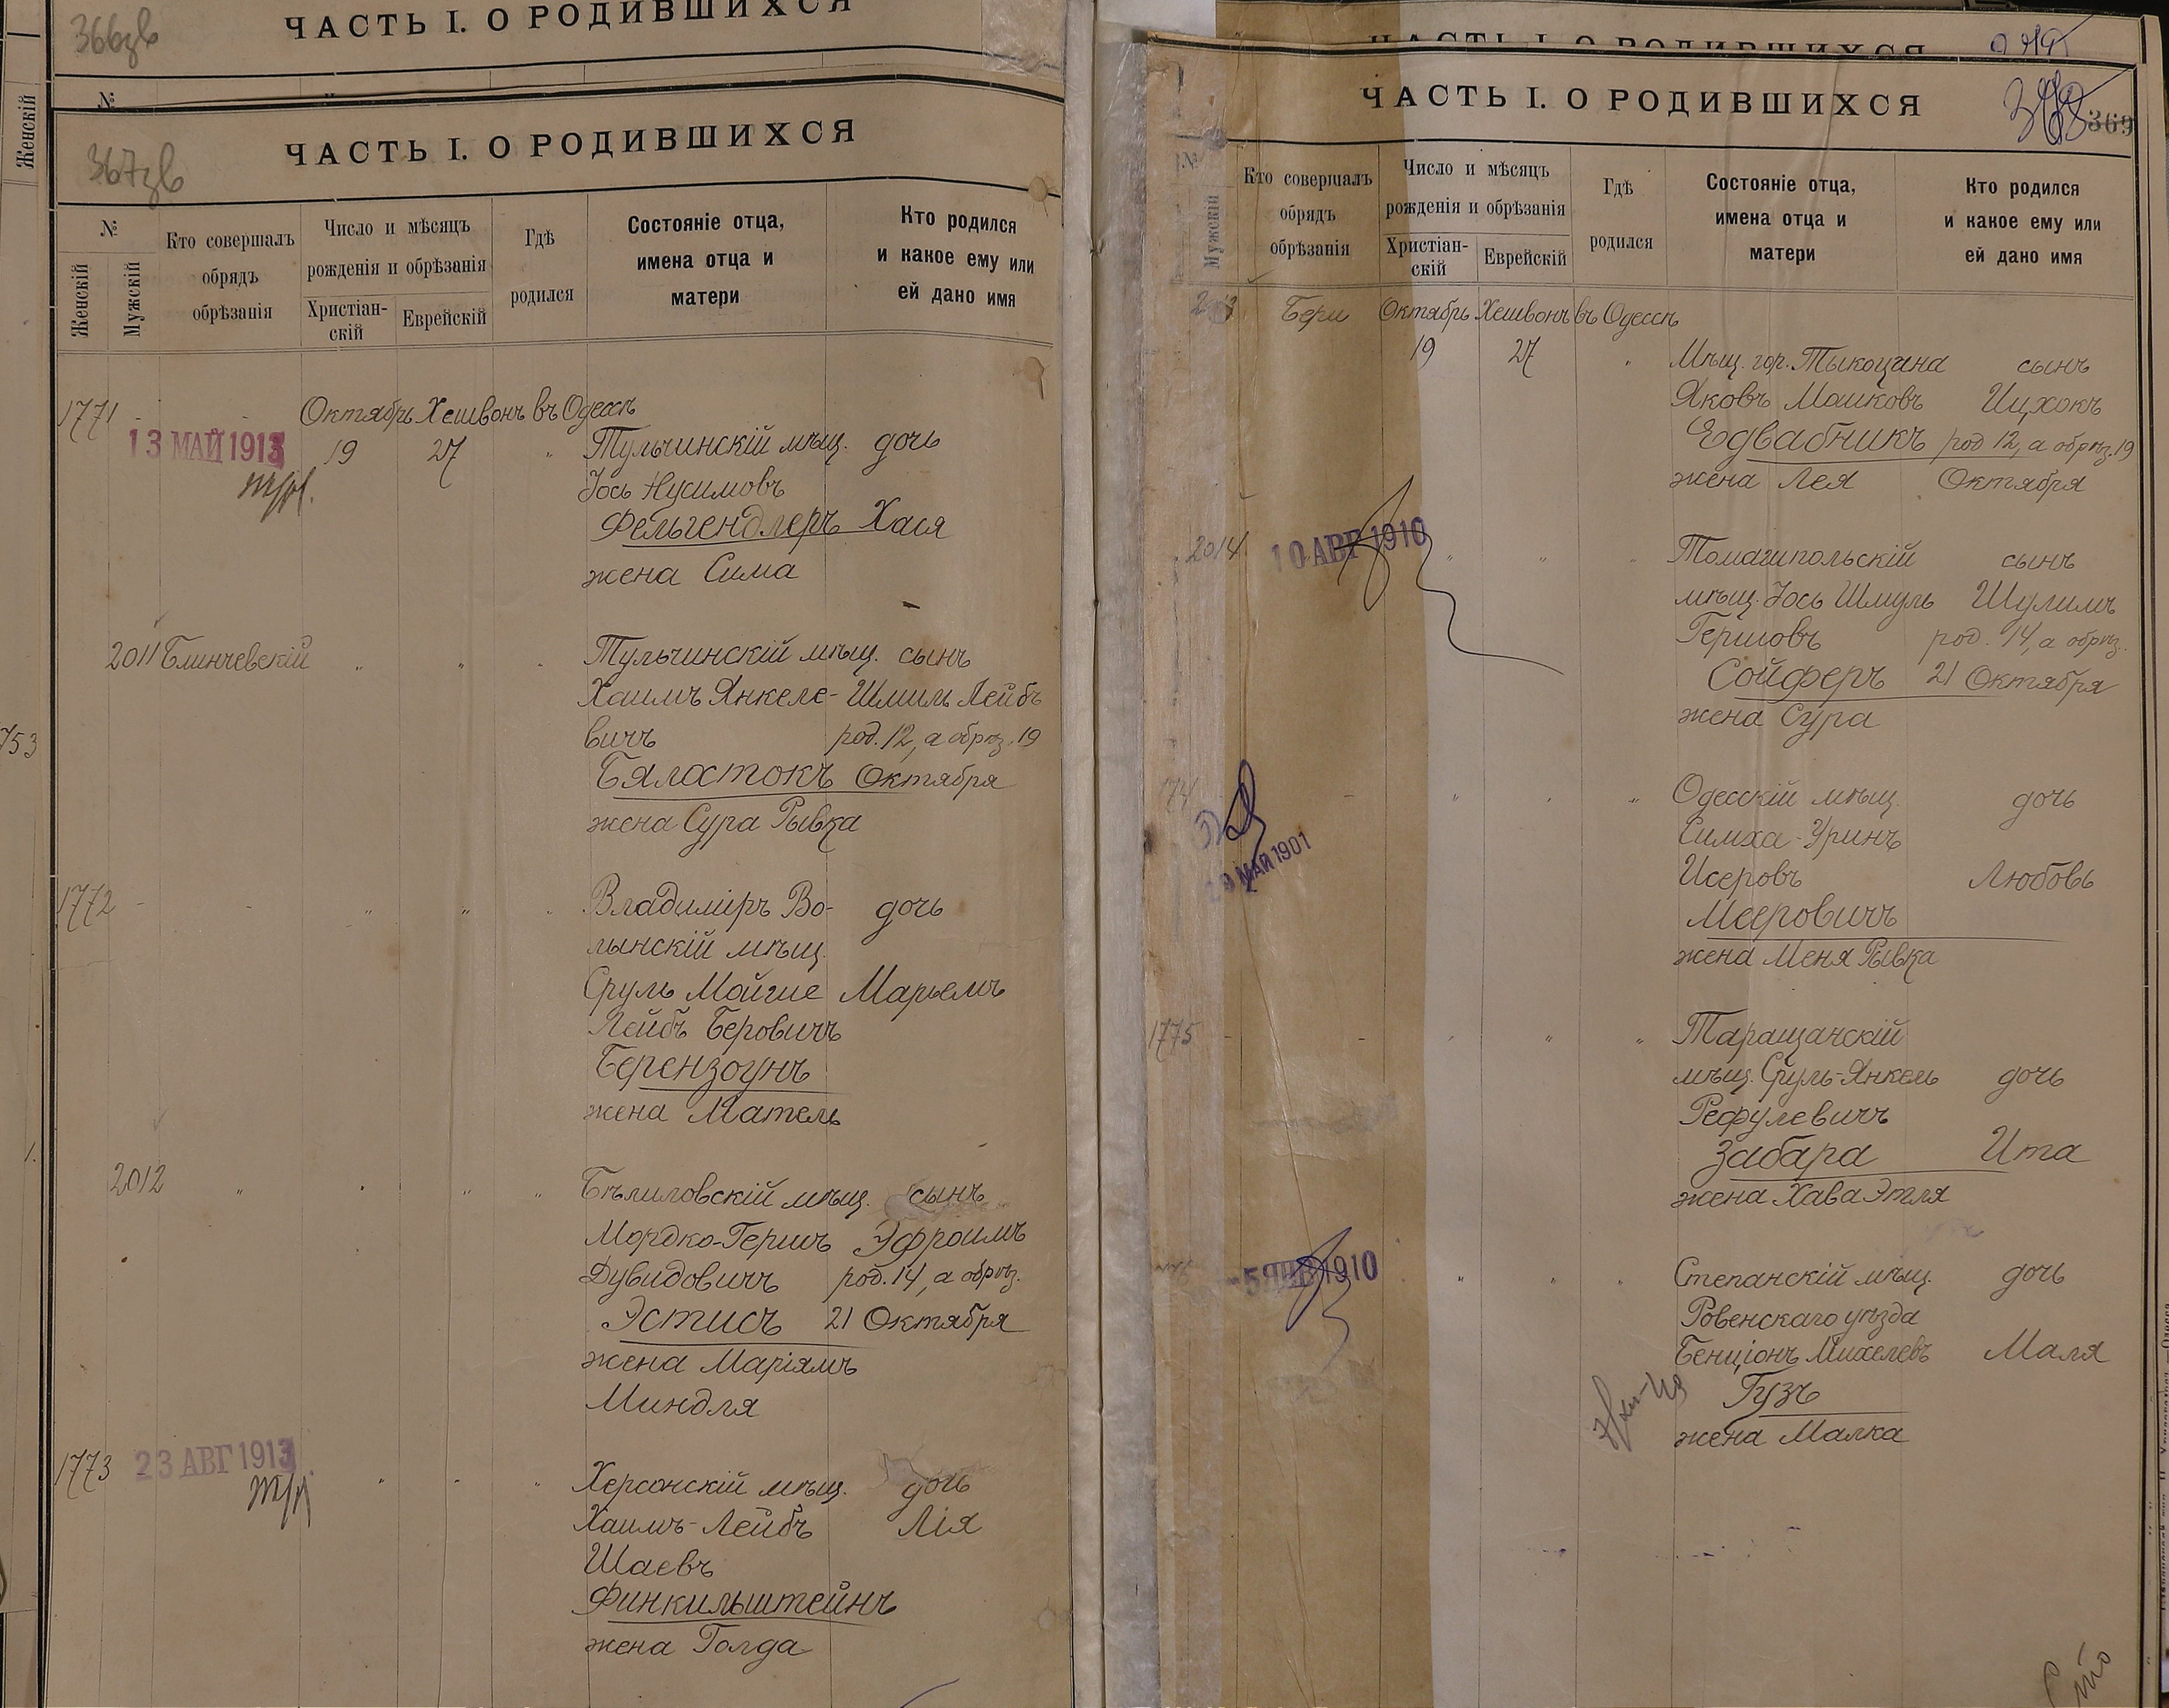 366зв
ЧАСТЬ I. О РОДИВШИХСЯ
№
Женскій
ЧАСТЬ I. О РОДИВШИХСЯ
367зв
№
Женскій
Мужскій
Кто совершалъ
обрядъ
обрѣзанія
Число и мѣсяцъ
рожденія и обрѣзанія
Христіан-
скій
Еврейскій
Гдѣ
родился
Состояніе отца,
имена отца и
матери
Кто родился
и какое ему или
ей дано имя
1771 Октябрь Хешвонъ въ Одессѣ
13 МАЙ 1913 19 27 " Тульчинскій мѣщ. дочь
Іось Нусимовъ
Фельгендлеръ Хася
жена Сима
2011 Блинчевскій " " " Тульчинскій мѣщ. сынъ
Хаимъ Янкеле- Шмиль Лейбъ
вичъ род. 12, а обрѣз. 19
Бялостокъ Октября
жена Сура Рывка
753
1772 - - " " " Владиміръ Во- дочь
лынскій мѣщ.
Сруль Мойше Марьемъ
Лейбъ Беровичъ
Берензоунъ
жена Матель
2012 " " " " Бѣлиловскій мѣщ. сынъ
Мордко-Гершъ Эфроимъ
Дувидовичъ род. 14, а обрѣз.
Эстисъ 21 Октября
жена Маріямъ
Миндля
1773 23 АВГ 1913 " " " Херсонскій мѣщ. дочь
Хаимъ-Лейбъ Лія
Шаевъ
Финкильштейнъ
жена Голда
ЧАСТЬ I. О РОДИВШИХСЯ
ЧАСТЬ I. О РОДИВШИХСЯ
369
№
Мужскій
Кто совершалъ
обрядъ
обрѣзанія
Число и мѣсяцъ
рожденія и обрѣзанія
Христіан-
скій
Еврейскій
Гдѣ
родился
Состояніе отца,
имена отца и
матери
Кто родился
и какое ему или
ей дано имя
2013 Бери Октябрь Хешвонъ въ Одессѣ
19 27 " Мѣщ. гор. Тыкоцина сынъ
Яковъ Маиковъ Ицхокъ
Едвабникъ род 12, а обрѣз. 19
жена Лея Октября
2014 10 АВГ 1910 " " " Томашпольскій сынъ
мѣщ. Іось Шмуль Шулимъ
Гершовъ род. 14, а обрѣз.
Сойферъ 21 Октября
жена Сура
174 - " " " Одесскій мѣщ. дочь
Симха-Уринъ
МАЙ 1901 Исеровъ Любовь
Мееровичъ
жена Меня Рывка
1775 - - " " " Таращанскій
мѣщ. Сруль-Янкель дочь
Рефулевичъ
Забара Ита
жена Хава Этля
5 ЯНВ 1910 " " " Степанскій мѣщ. дочь
Ровенскаго уѣзда
Бенціонъ Михелевъ Маля
Гузъ
жена Малка